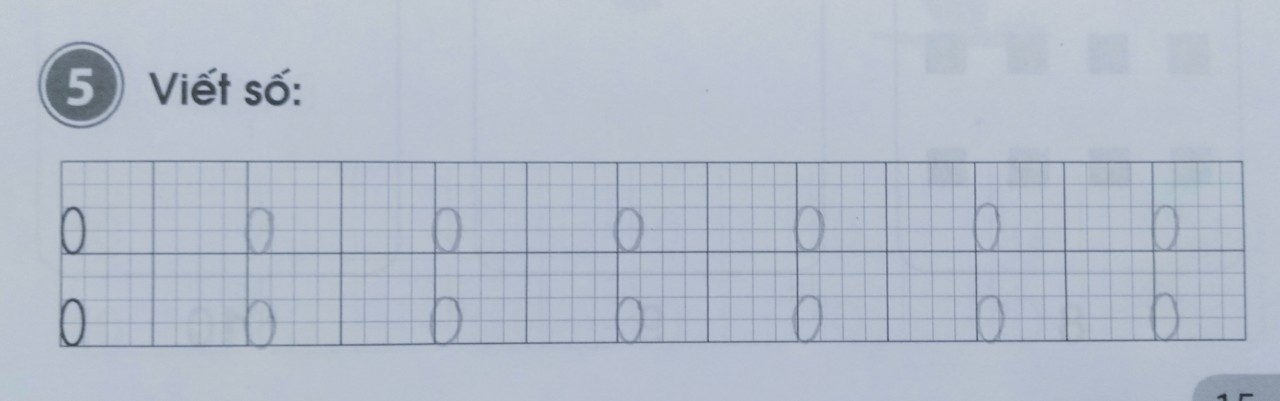 5 Viết số:
0 0 0 0 0 0 0
0 0 0 0 0 0 0